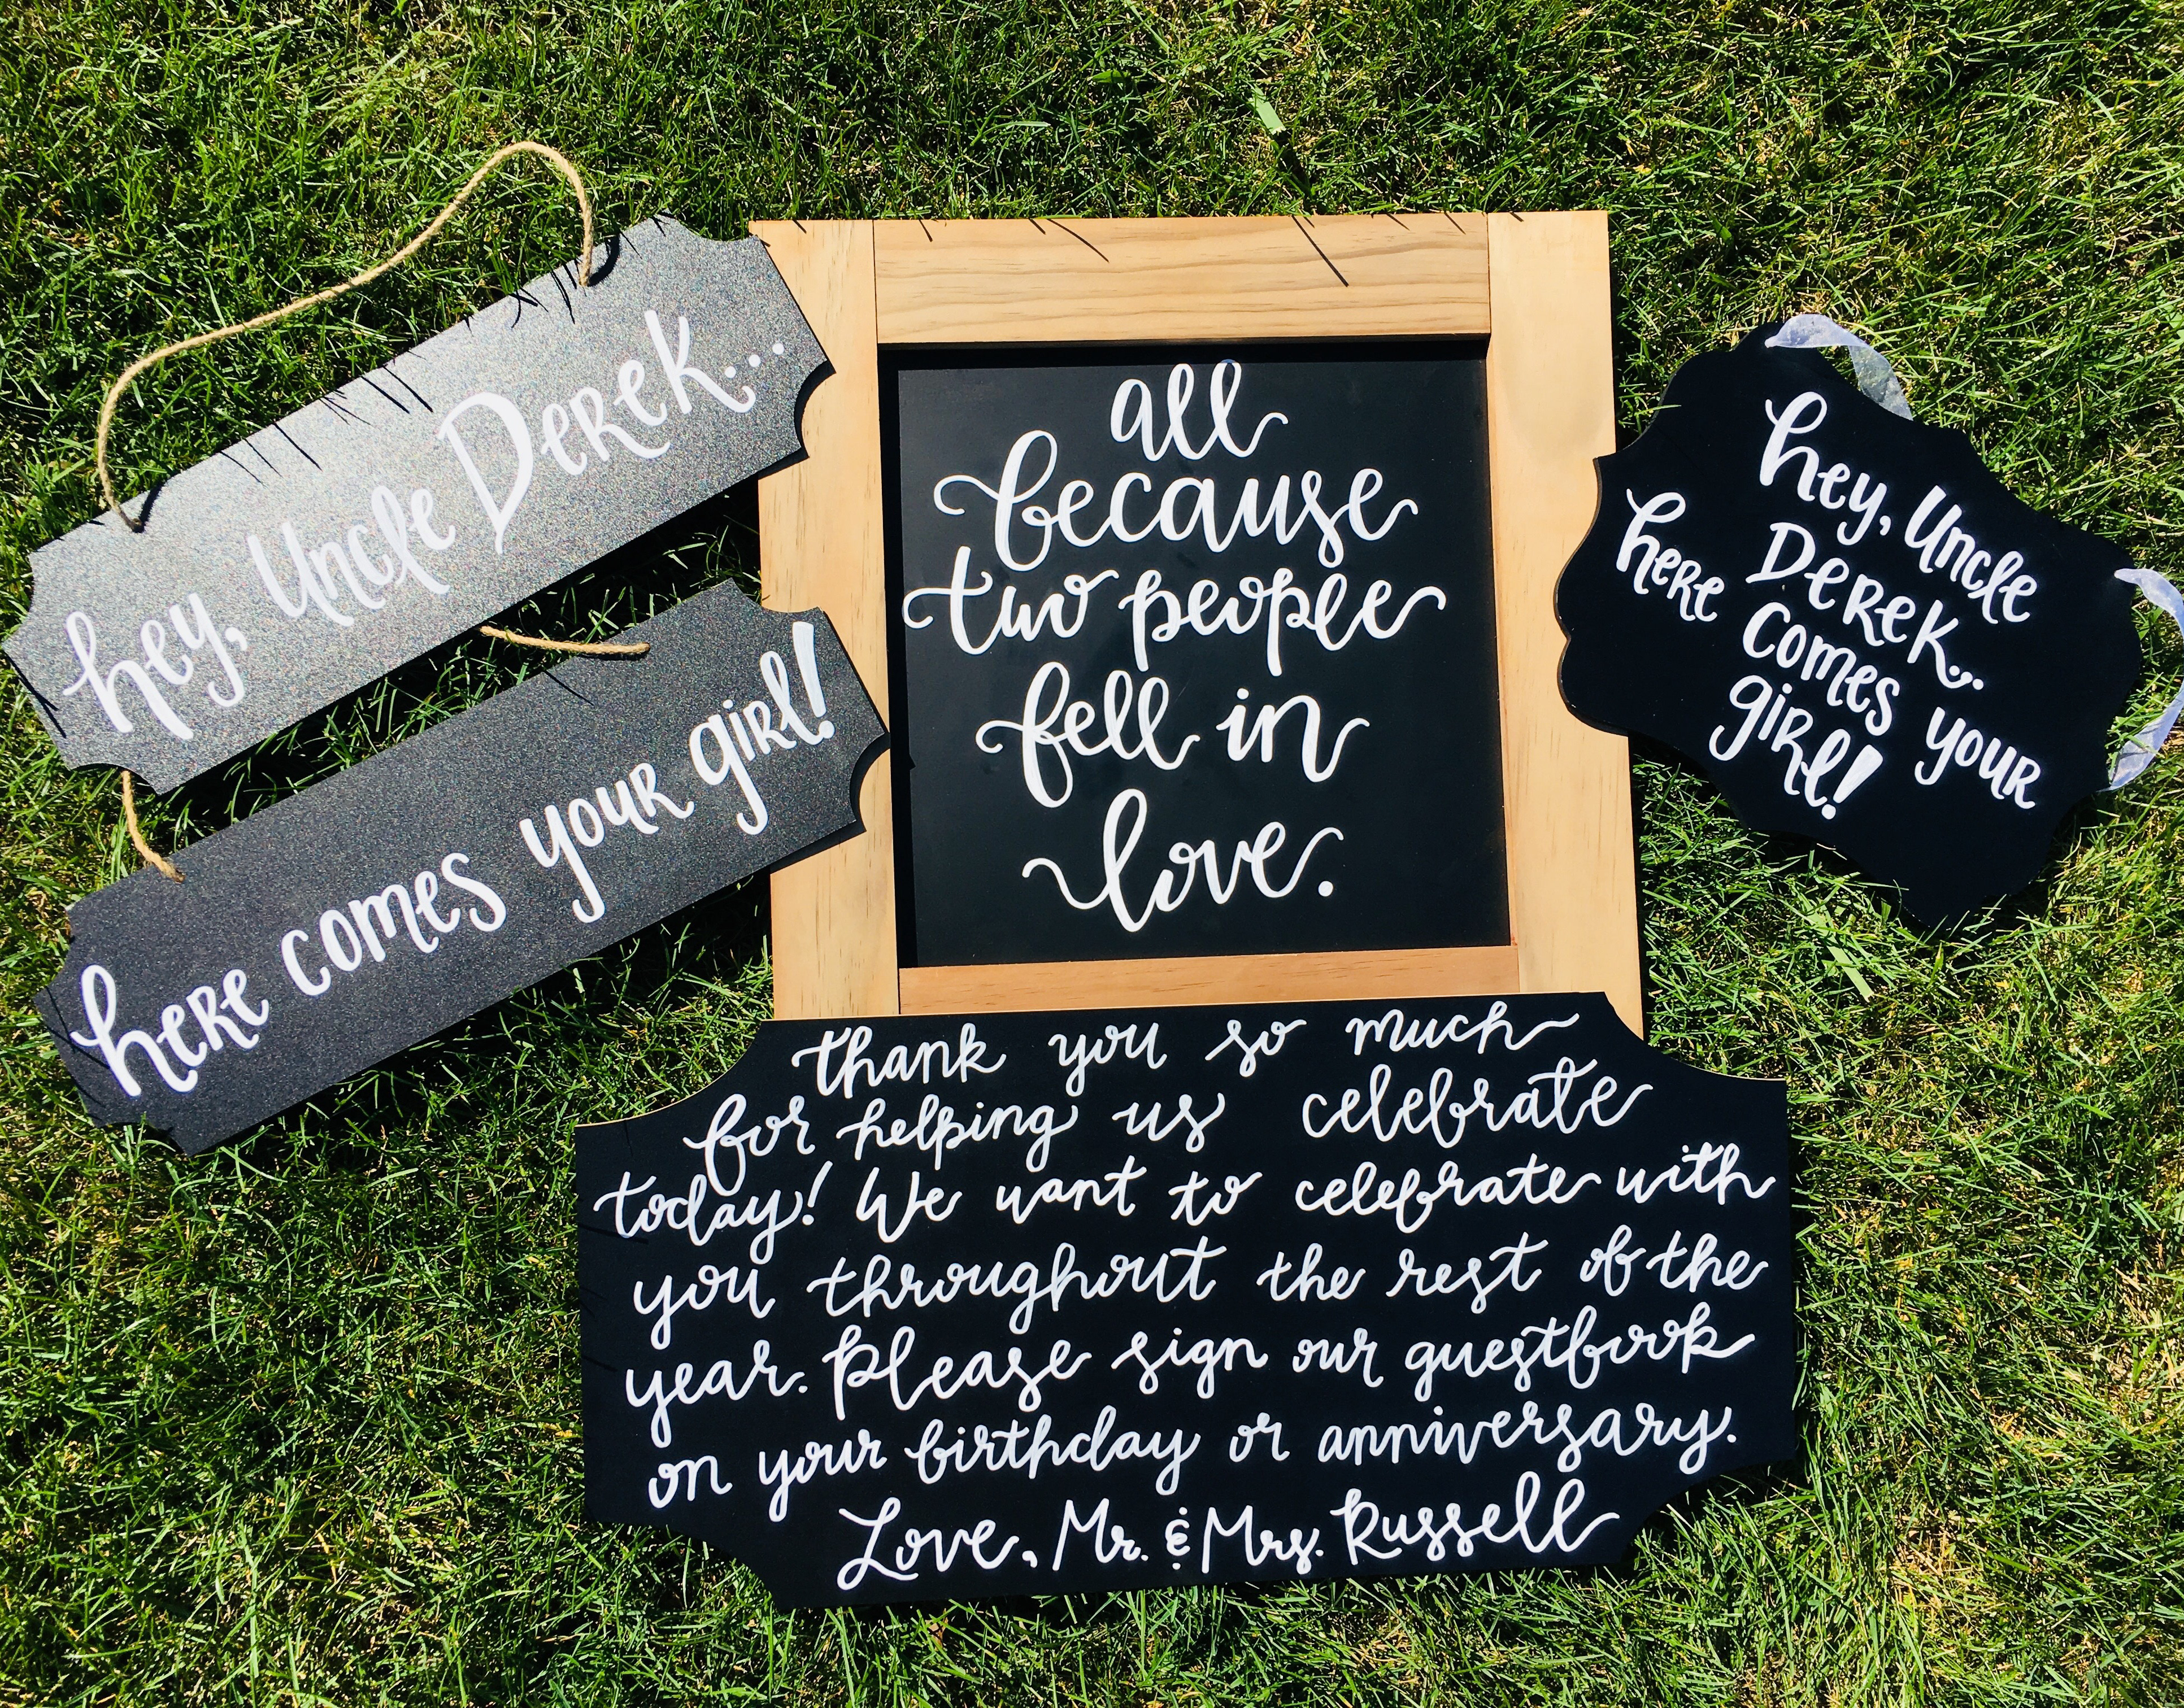 hey, Uncle Derek...
here comes your girl!
all
because
two people
fell in
love.
hey, Uncle
Derek...
here comes your
girl!
thank you so much
for helping us celebrate
today! We want to celebrate with
you throughout the rest of the
year. Please sign our guestbook
on your birthday or anniversary.
Love, Mr. & Mrs. Russell